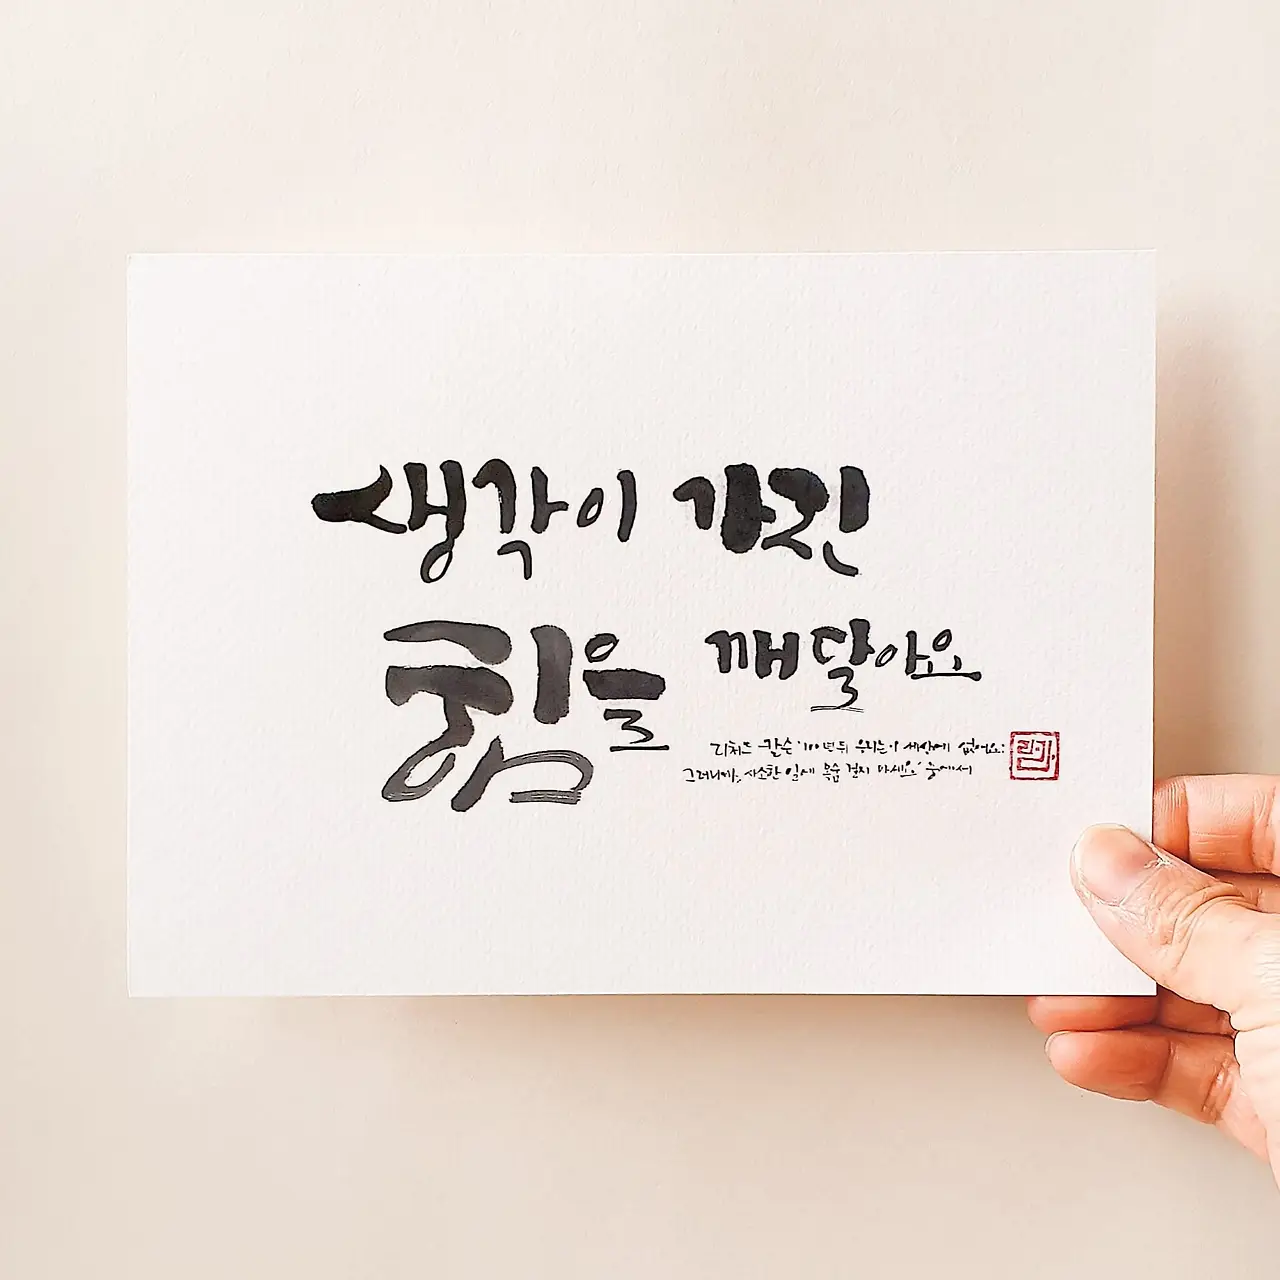 생각이 가진
힘을 깨달아요
리처드 칼슨 '100년뒤 우리는 이 세상에 없어요:
그러니까, 사소한 일에 목숨 걸지 마세요' 중에서